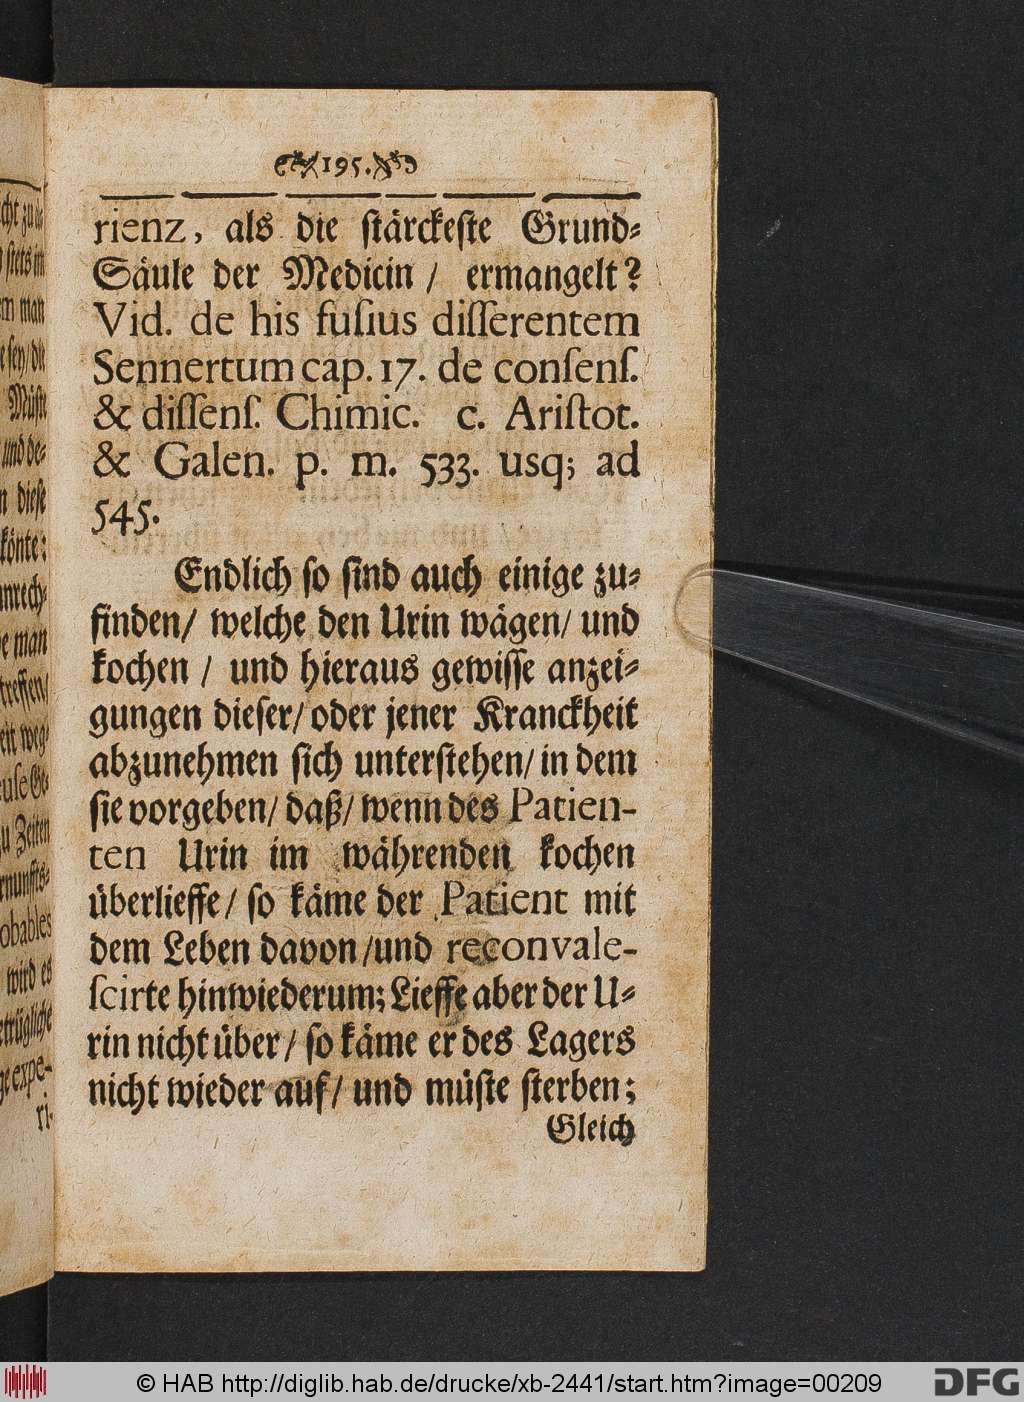 195.
rienz, als die stärckeste Grund-
Säule der Medicin / ermangelt?
Vid. de his fusius disserentem
Sennertum cap. 17. de consens.
& dissens. Chimic. c. Aristot.
& Galen. p. m. 533. usq; ad
545.
Endlich so sind auch einige zu-
finden/ welche den Urin wägen/ und
kochen / und hieraus gewisse anzei-
gungen dieser/ oder jener Kranckheit
abzunehmen sich unterstehen/ in dem
sie vorgeben/ daß/ wenn des Patien-
ten Urin im währenden kochen
überlieffe/ so käme der Patient mit
dem Leben davon/und reconvale-
scirte hinwiederum; Lieffe aber der U-
rin nicht über/ so käme er des Lagers
nicht wieder auf/ und müste sterben;
Gleich
© HAB http://diglib.hab.de/drucke/xb-2441/start.htm?image=00209
DFG